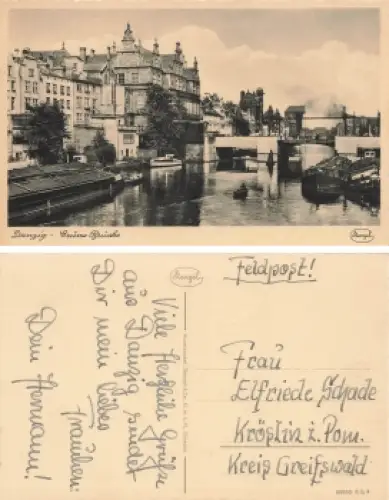 Danzig - Grüne Brücke
Stengel
Stengel
Feldpost!
Viele Herzliche Grüße
aus Danzig sendet
Dir mein liebes
Frauchen:
Dein Hermann!
Frau
Elfriede Schade
Kröslin i. Pom.
Kreis Greifswald